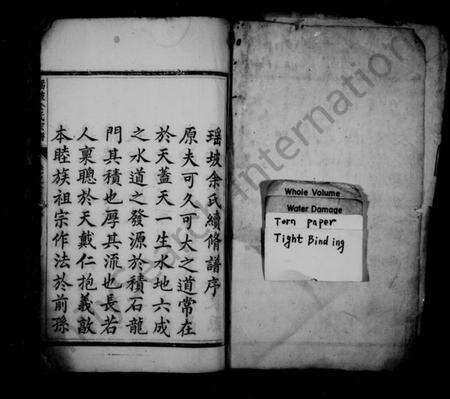 瑶坡余氏續修譜序
原夫可久可大之道常在
於天蓋天一生水地六成
之水道之發源於積石龍
門其積也厚其流也長若
人稟聰於天戴仁抱義敦
本睦族祖宗作法於前孫
Whole Volume
Water Damage
Torn paper
Tight Binding